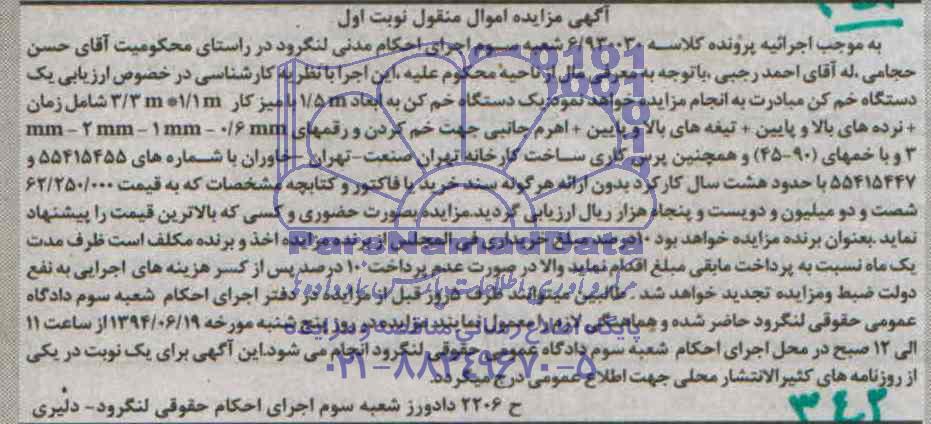 آگهی مزایده اموال منقول نوبت اول
به موجب اجرائیه پرونده کلاسه ۶/۹۳۰۰۳۰ شعبه سوم اجرای احکام مدنی لنگرود در راستای محکومیت آقای حسن
حجامی ،له آقای احمد رجبی ،باتوجه به معرفی مال از ناحیه محکوم علیه ،این اجرا با نظریه کارشناسی در خصوص ارزیابی یک
دستگاه خم کن مبادرت به انجام مزایده خواهد نمود:یک دستگاه خم کن به ابعاد ۱/۵ m با میز کار ۳/۳ m *۱/۱ m شامل زمان
+ نرده های بالا و پایین + تیغه های بالا و پایین + اهرم جانبی جهت خم کردن و رقمهای mm – ۲ mm – ۱ mm – ۰/۶ mm
۳ و با خمهای (۹۰-۴۵) و همچنین پرس کاری ساخت کارخانه تهران صنعت-تهران -خاوران با شماره های ۵۵۴۱۵۴۵۵ و
۵۵۴۱۵۴۴۷ با حدود هشت سال کارکرد بدون ارائه هرگونه سند خرید یا فاکتور و کتابچه مشخصات که به قیمت ۶۲/۲۵۰/۰۰۰
شصت و دو میلیون و دویست و پنجاه هزار ریال ارزیابی گردید.مزایده بصورت حضوری و کسی که بالاترین قیمت را پیشنهاد
نماید ،بعنوان برنده مزایده خواهد بود ۱۰درصد مبلغ خریداری فی المجلس از برنده مزایده اخذ و برنده مکلف است ظرف مدت
یک ماه نسبت به پرداخت مابقی مبلغ اقدام نماید والا در صورت عدم پرداخت ۱۰ درصد پس از کسر هزینه های اجرایی به نفع
دولت ضبط ومزایده تجدید خواهد شد . طالبین میتوانند ظرف ۵روز قبل از مزایده در دفتر اجرای احکام شعبه سوم دادگاه
عمومی حقوقی لنگرود حاضر شده و هماهنگی لازم را معمول نمایند.مزایده در روز پنج شنبه مورخه ۱۳۹۴/۰۶/۱۹ از ساعت ۱۱
الی ۱۲ صبح در محل اجرای احکام شعبه سوم دادگاه عمومی حقوقی لنگرود انجام می شود.این آگهی برای یک نوبت در یکی
از روزنامه های کثیرالانتشار محلی جهت اطلاع عمومی درج میگردد.
ح ۲۲۰۶ دادورز شعبه سوم اجرای احکام حقوقی لنگرود- دلیری
ParsNamadData
پایگاه اطلاع رسانی مناقصه و مزایده
۰۲۱-۸۸۳۴۹۶۷۰-۵
۳۴۲